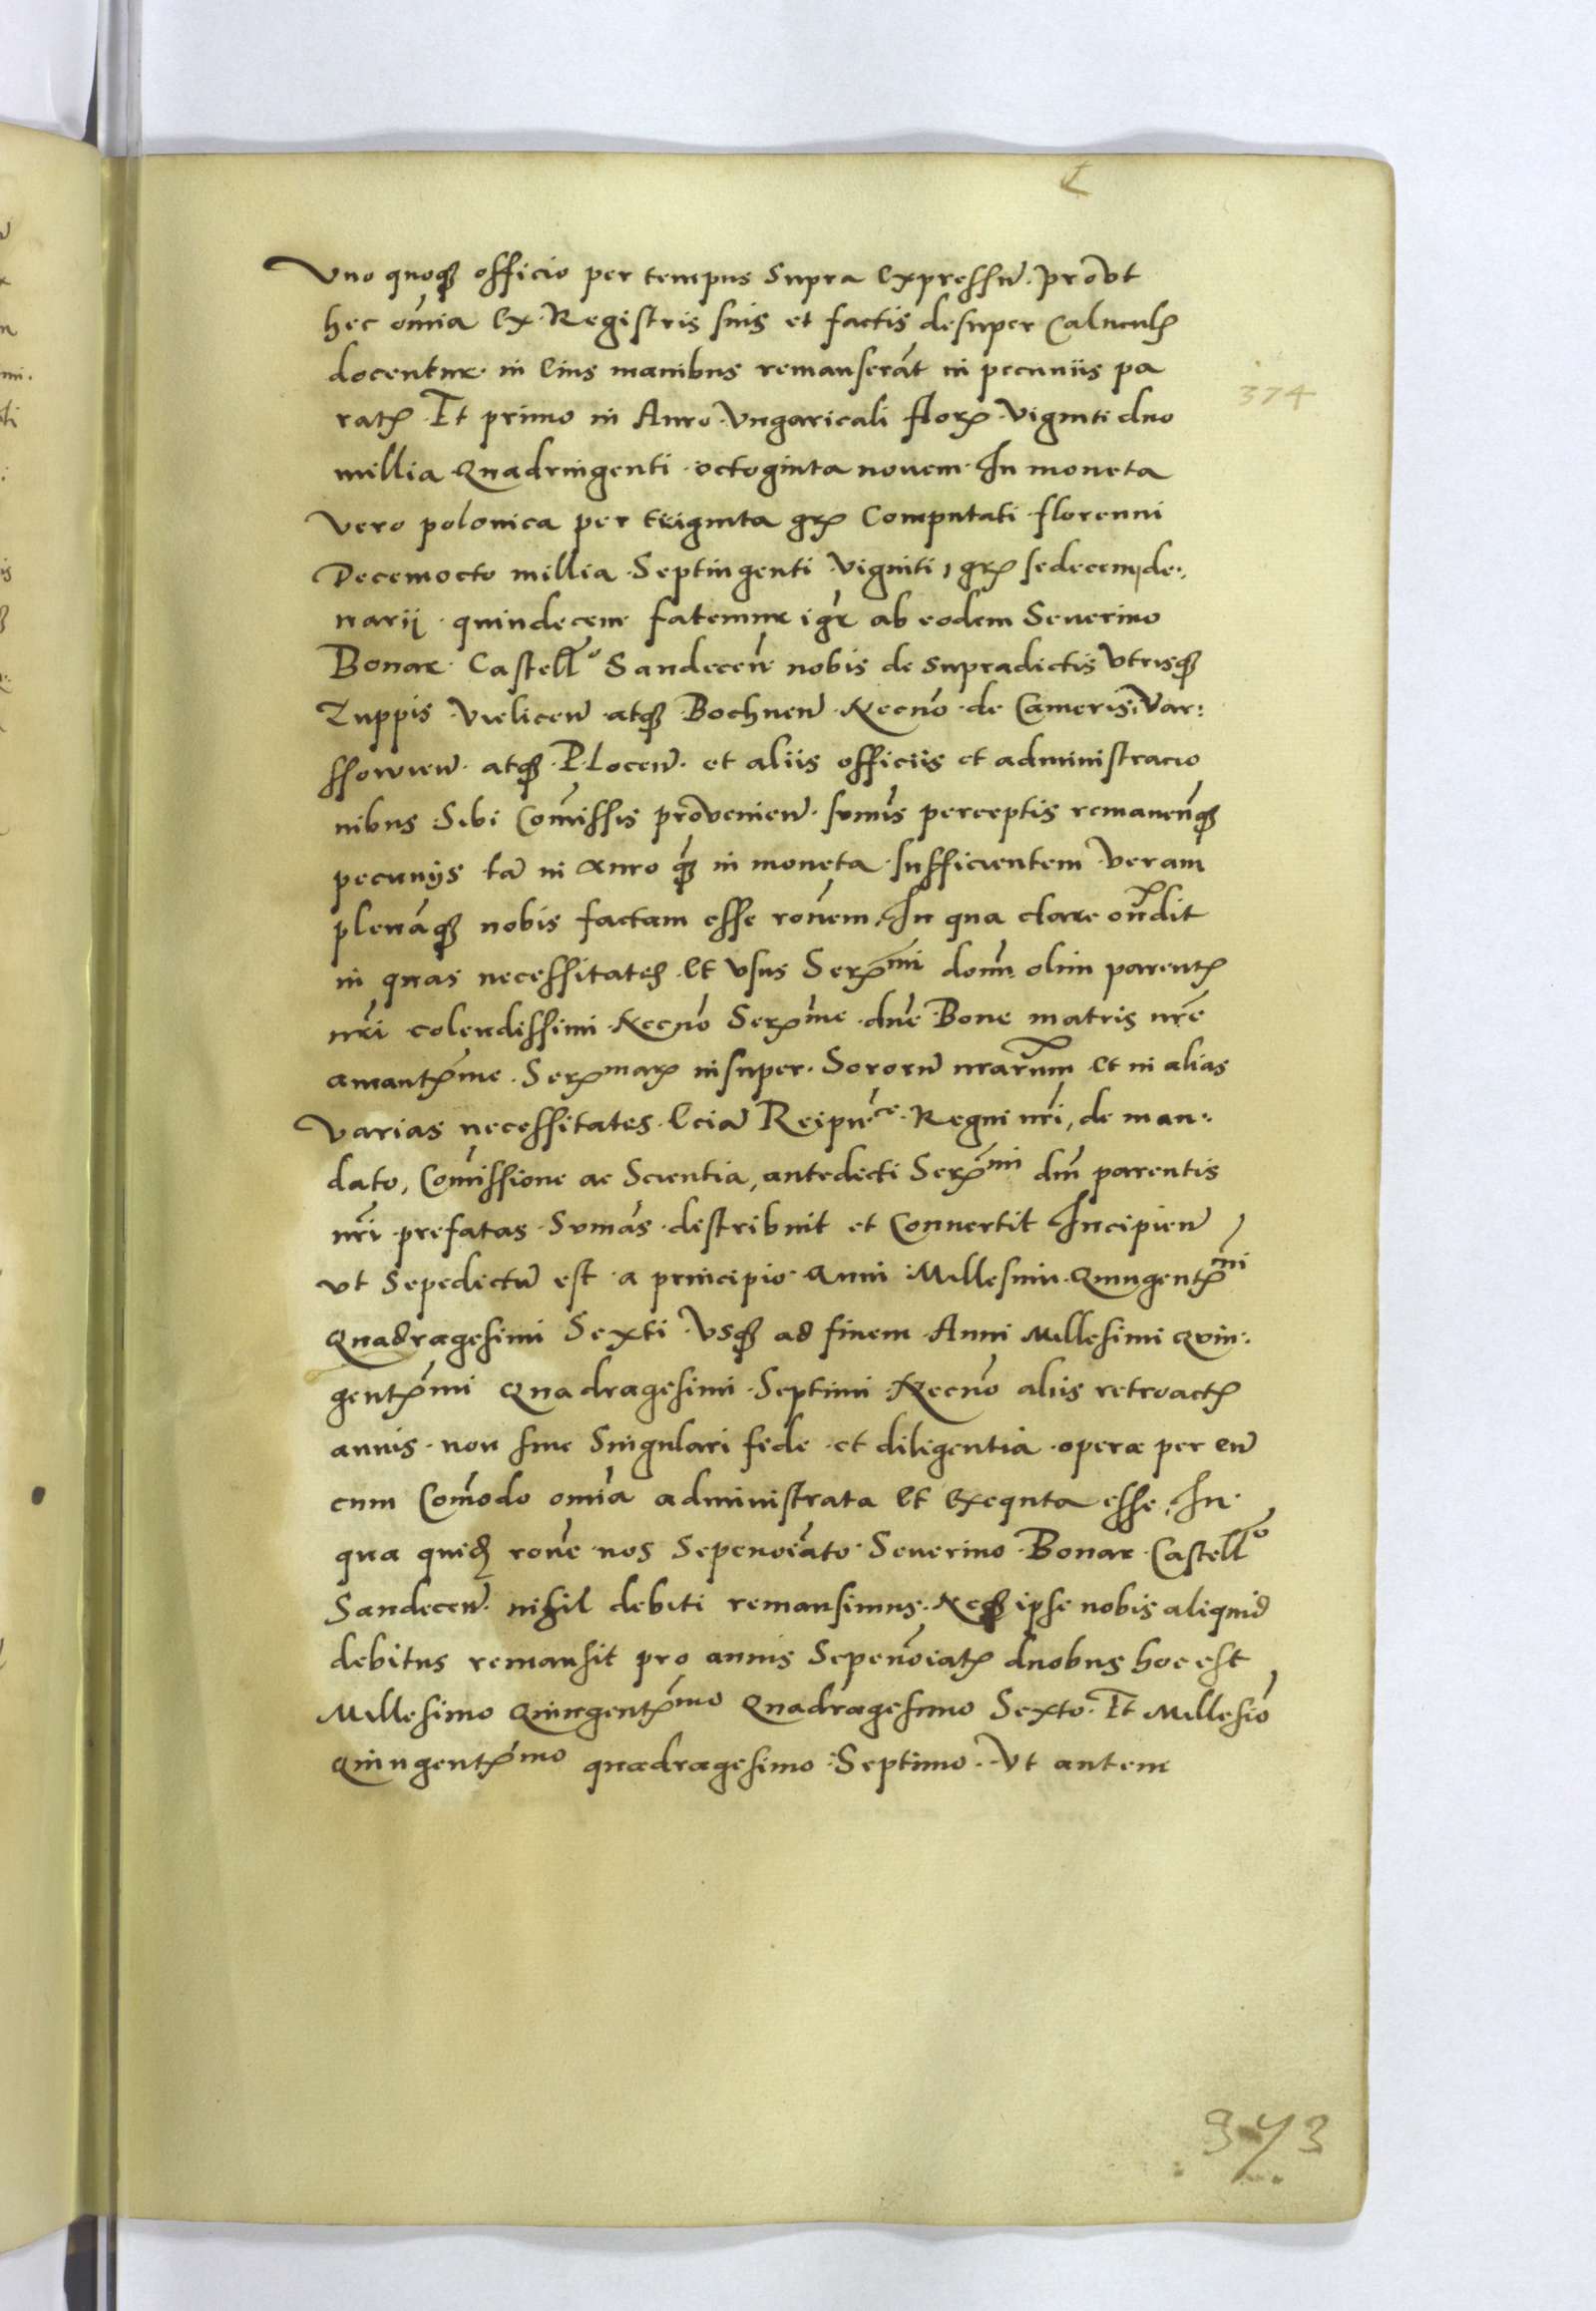 Vno quoqз officio per tempus Supra Expressũ. provt
hec om̃ia Ex Registris suis et factis desuper Calculꝭ
docentur in Eius manibus remanserãt in pecuniis pa
ratꝭ. Et primo in Auro Vngaricali florꝭ. Viginti duo
millia Quadringenti octoginta nouem. In moneta
vero polonica per triginta grꝭ Computati florenni
Decemocto millia Septingenti Viginti, grꝭ sedecem, de:
narij quindecem fatemur igr̃ ab eodem Seuerino
Bonar Castellº Sandeceñ nobis de supradictis vtrisqз
Zuppis Vieliceñ atqз Bochneñ Necnõ de Cameris, Var:
ssowieñ. atqз Ploceñ. et aliis officiis et administracio
nibus Sibi Com̃issis provenieñ. sum̃is perceptis remaneñqз
pecunijs tã in auro qз̃ in moneta sufficientem veram
plenãqз nobis factam esse rõnem. In qua clare oñdit
in quas necessitates Et vsus Serꝭmi domi. olim parentꝭ
nr̃i colendissimi Necnõ Serꝭme dñe Bone matris nr̃e
amantꝭme. Serꝭmarꝭ insuper. Sororũ nrarum et in alias
varias necessitates Eciã Reipuce. Regni nr̃i, de man:
dato, Com̃issione ac Scientia, antedicti Serꝭmi dñi parentis
nr̃i prefatas Sum̃as distribuit et Conuertit Incipieñ
vt Sepedictũ est a principio Anni Millesimi Quingentꝭmi
Quadragesimi Sexti vsqз ad finem Anni Millesimi Qvin:
gentꝭmi Quadragesimi Septimi Necnõ aliis retroactꝭ
annis non sine Singulari fide et diligentia opera per eũ
cum Com̃odo om̃ia administrata Et Exequta esse. In
qua quidз rõne nos Sepenoĩato Seuerino Bonar Castellº
Sandeceñ. nihil debiti remansimus. Neqз ipse nobis aliquid
debitus remansit pro annis Sepenoĩatꝭ duobus hoc est
Millesimo Quingentꝭmo Quadragesimo Sexto. Et Millesiõ
Quingentꝭmo quadragesimo Septimo. Vt autem
374
373